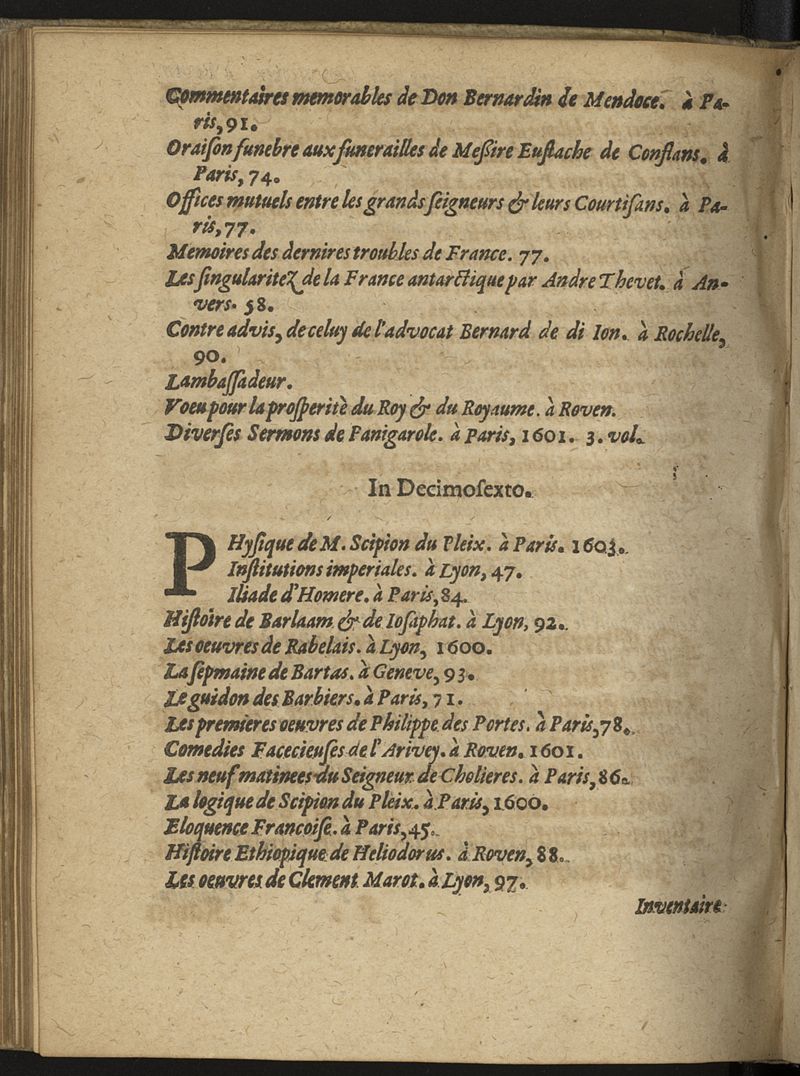 Commentaires memorables de Don Bernardin de Mendoce. à Pa-
ris, 91.
Oraiſon funebre aux funerailles de Meßire Euſtache de Conflans. à
Paris, 74.
Offices mutuels entre les grands ſeigneurs & leurs Courtiſans. à Pa-
ris, 77.
Memoires des dernires troubles de France. 77.
Les ſingularitez de la France antarctique par Andre Thevet. à An-
vers. 58.
Contre advis, de celuy de l'advocat Bernard de di Ion. à Rochelle,
90.
Lambaſſadeur.
Voeu pour la proſperitè du Roy & du Royaume. à Roven.
Diverſes Sermons de Panigarole. à Paris, 1601. 3. vol.
In Decimoſexto.
PHyſique de M. Scipion du Pleix. à Paris. 1603.
Inſtitutions imperiales. à Lyon, 47.
Iliade d'Homere. à Paris, 84.
Hiſtoire de Barlaam & de Ioſaphat. à Lyon, 92.
Les oeuvres de Rabelais. à Lyon, 1600.
La ſepmaine de Bartas. à Geneve, 93.
Le guidon des Barbiers. à Paris, 71.
Les premieres oeuvres de Philippe des Portes. à Paris, 78.
Comedies Facecieuſes de l'Arivey. à Roven. 1601.
Les neuf matinees du Seigneur de Cholieres. à Paris, 86.
La logique de Scipion du Pleix. à Paris, 1600.
Eloquence Francoiſe. à Paris, 45.
Hiſtoire Ethiopique de Heliodorus. à Roven, 88.
Les oeuvres de Clement Marot. à Lyon, 97.
Inventaire